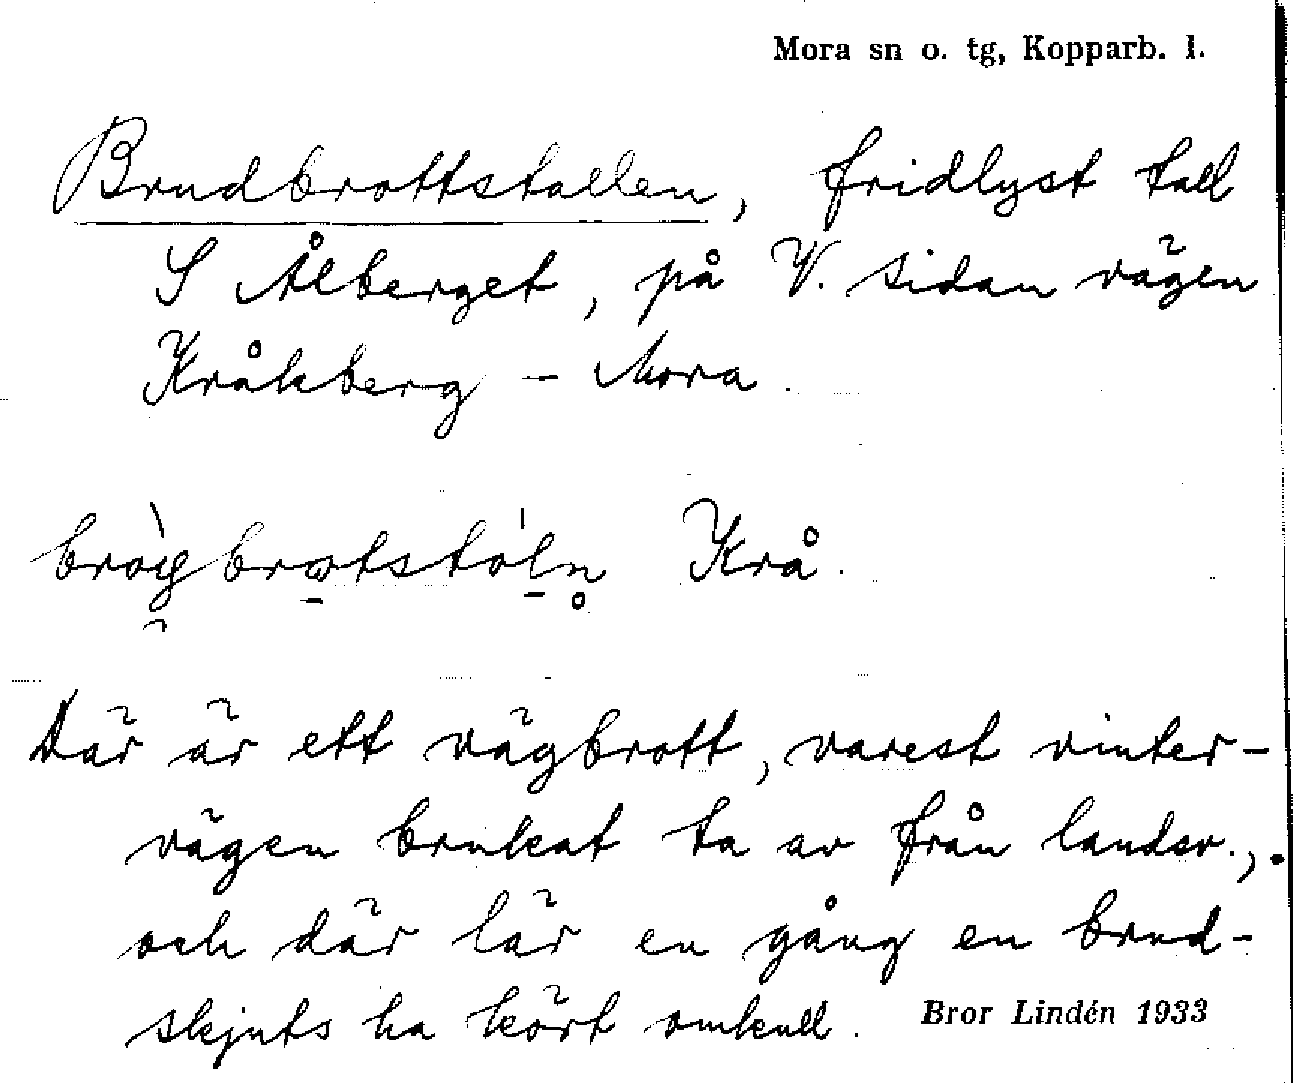 Mora sn o. tg, Kopparb. l.
Brudbrottstallen, fridlyst tall
S Ålberget, på V. sidan vägen
Kråkberg - Mora.
Krå.
Där är ett vägbrott, varest vinter-
vägen brukat ta av från landsv.,
och där lär en gång en brud-
skjuts ha kört omkull. Bror Lindén 1933